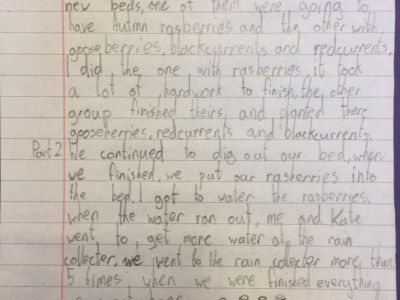 new beds, one of them were going to
have Autmn rasberries and the other with
gooseberries, blackcurrents and redcurrents,
I did, the one with rasberries, it took
a lot of hardwork to finish, the other
group finished theirs, and planted there
gooseberries, redcurrents and blackcurrents,
Part 2 We continued to dig out our bed, when
we finished, we put our rasberries into
the bed. I got to water the rasberries,
when the water ran out, me and Kate
went to, get more water at, the rain
collecter, we went to the rain collecter more, than
5 times, when we were finished everything